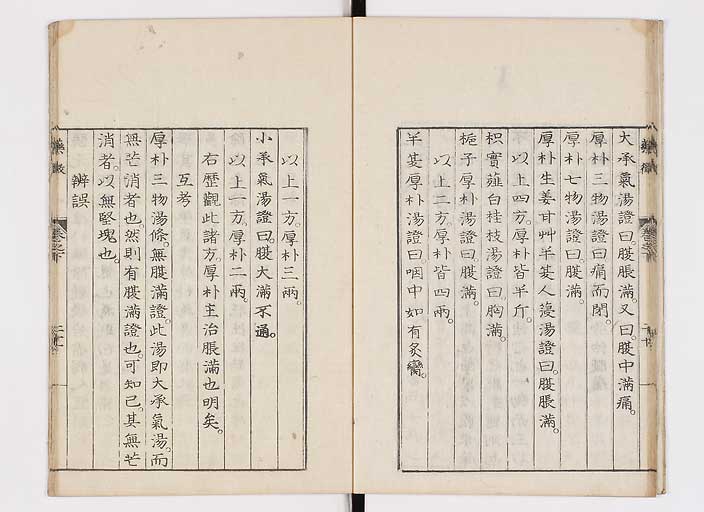 大承氣湯證曰。腹脹滿。又曰。腹中滿痛。
厚朴三物湯證曰。痛而閉。
厚朴七物湯證曰。腹滿。
厚朴生姜甘艸半夏人薓湯證曰。腹脹滿。
以上四方。厚朴皆半斤。
枳實薤白桂枝湯證曰。胸滿。
梔子厚朴湯證曰。腹滿。
以上二方。厚朴皆四兩。
半夏厚朴湯證曰。咽中如有炙臠。
以上一方。厚朴三兩。
小承氣湯證曰。腹大滿不通。
以上一方。厚朴二兩。
右歷觀此諸方。厚朴主治脹滿也明矣。
互考
厚朴三物湯條。無腹滿證。此湯即大承氣湯。而
無芒消者也。然則有腹滿證也。可知已。其無芒
消者。以無堅塊也。
辨誤
藥徵
藥徵